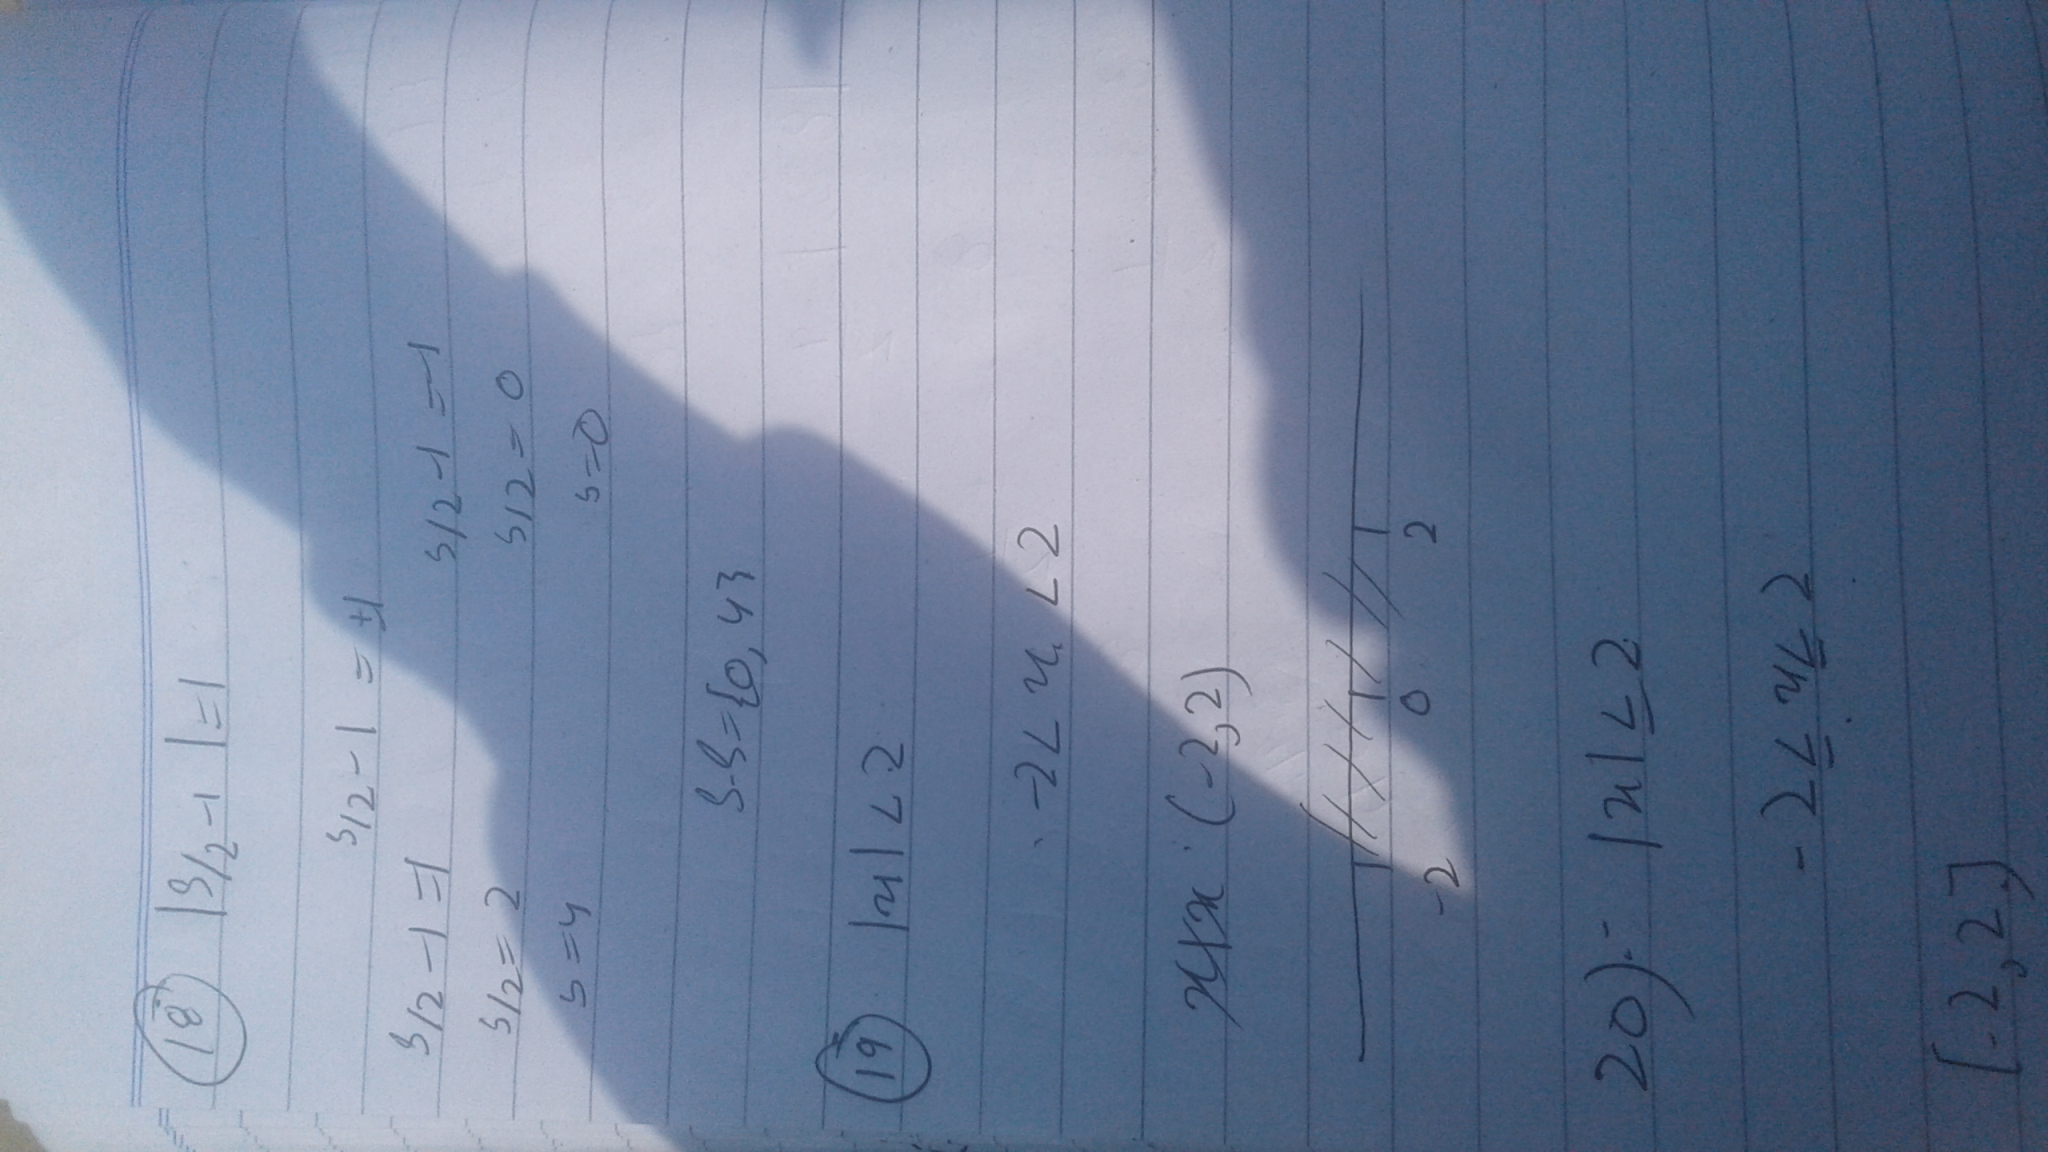 18 |s/2-1|=1
s/2-1 = ±1
s/2-1=1 s/2-1=-1
s/2=2 s/2=0
s=4 s=0
S.S={0,4}
19 |x|<2
-2<x<2
(-2,2)
-2 0 2
20):- |x|≤2
-2≤x≤2
[-2,2]